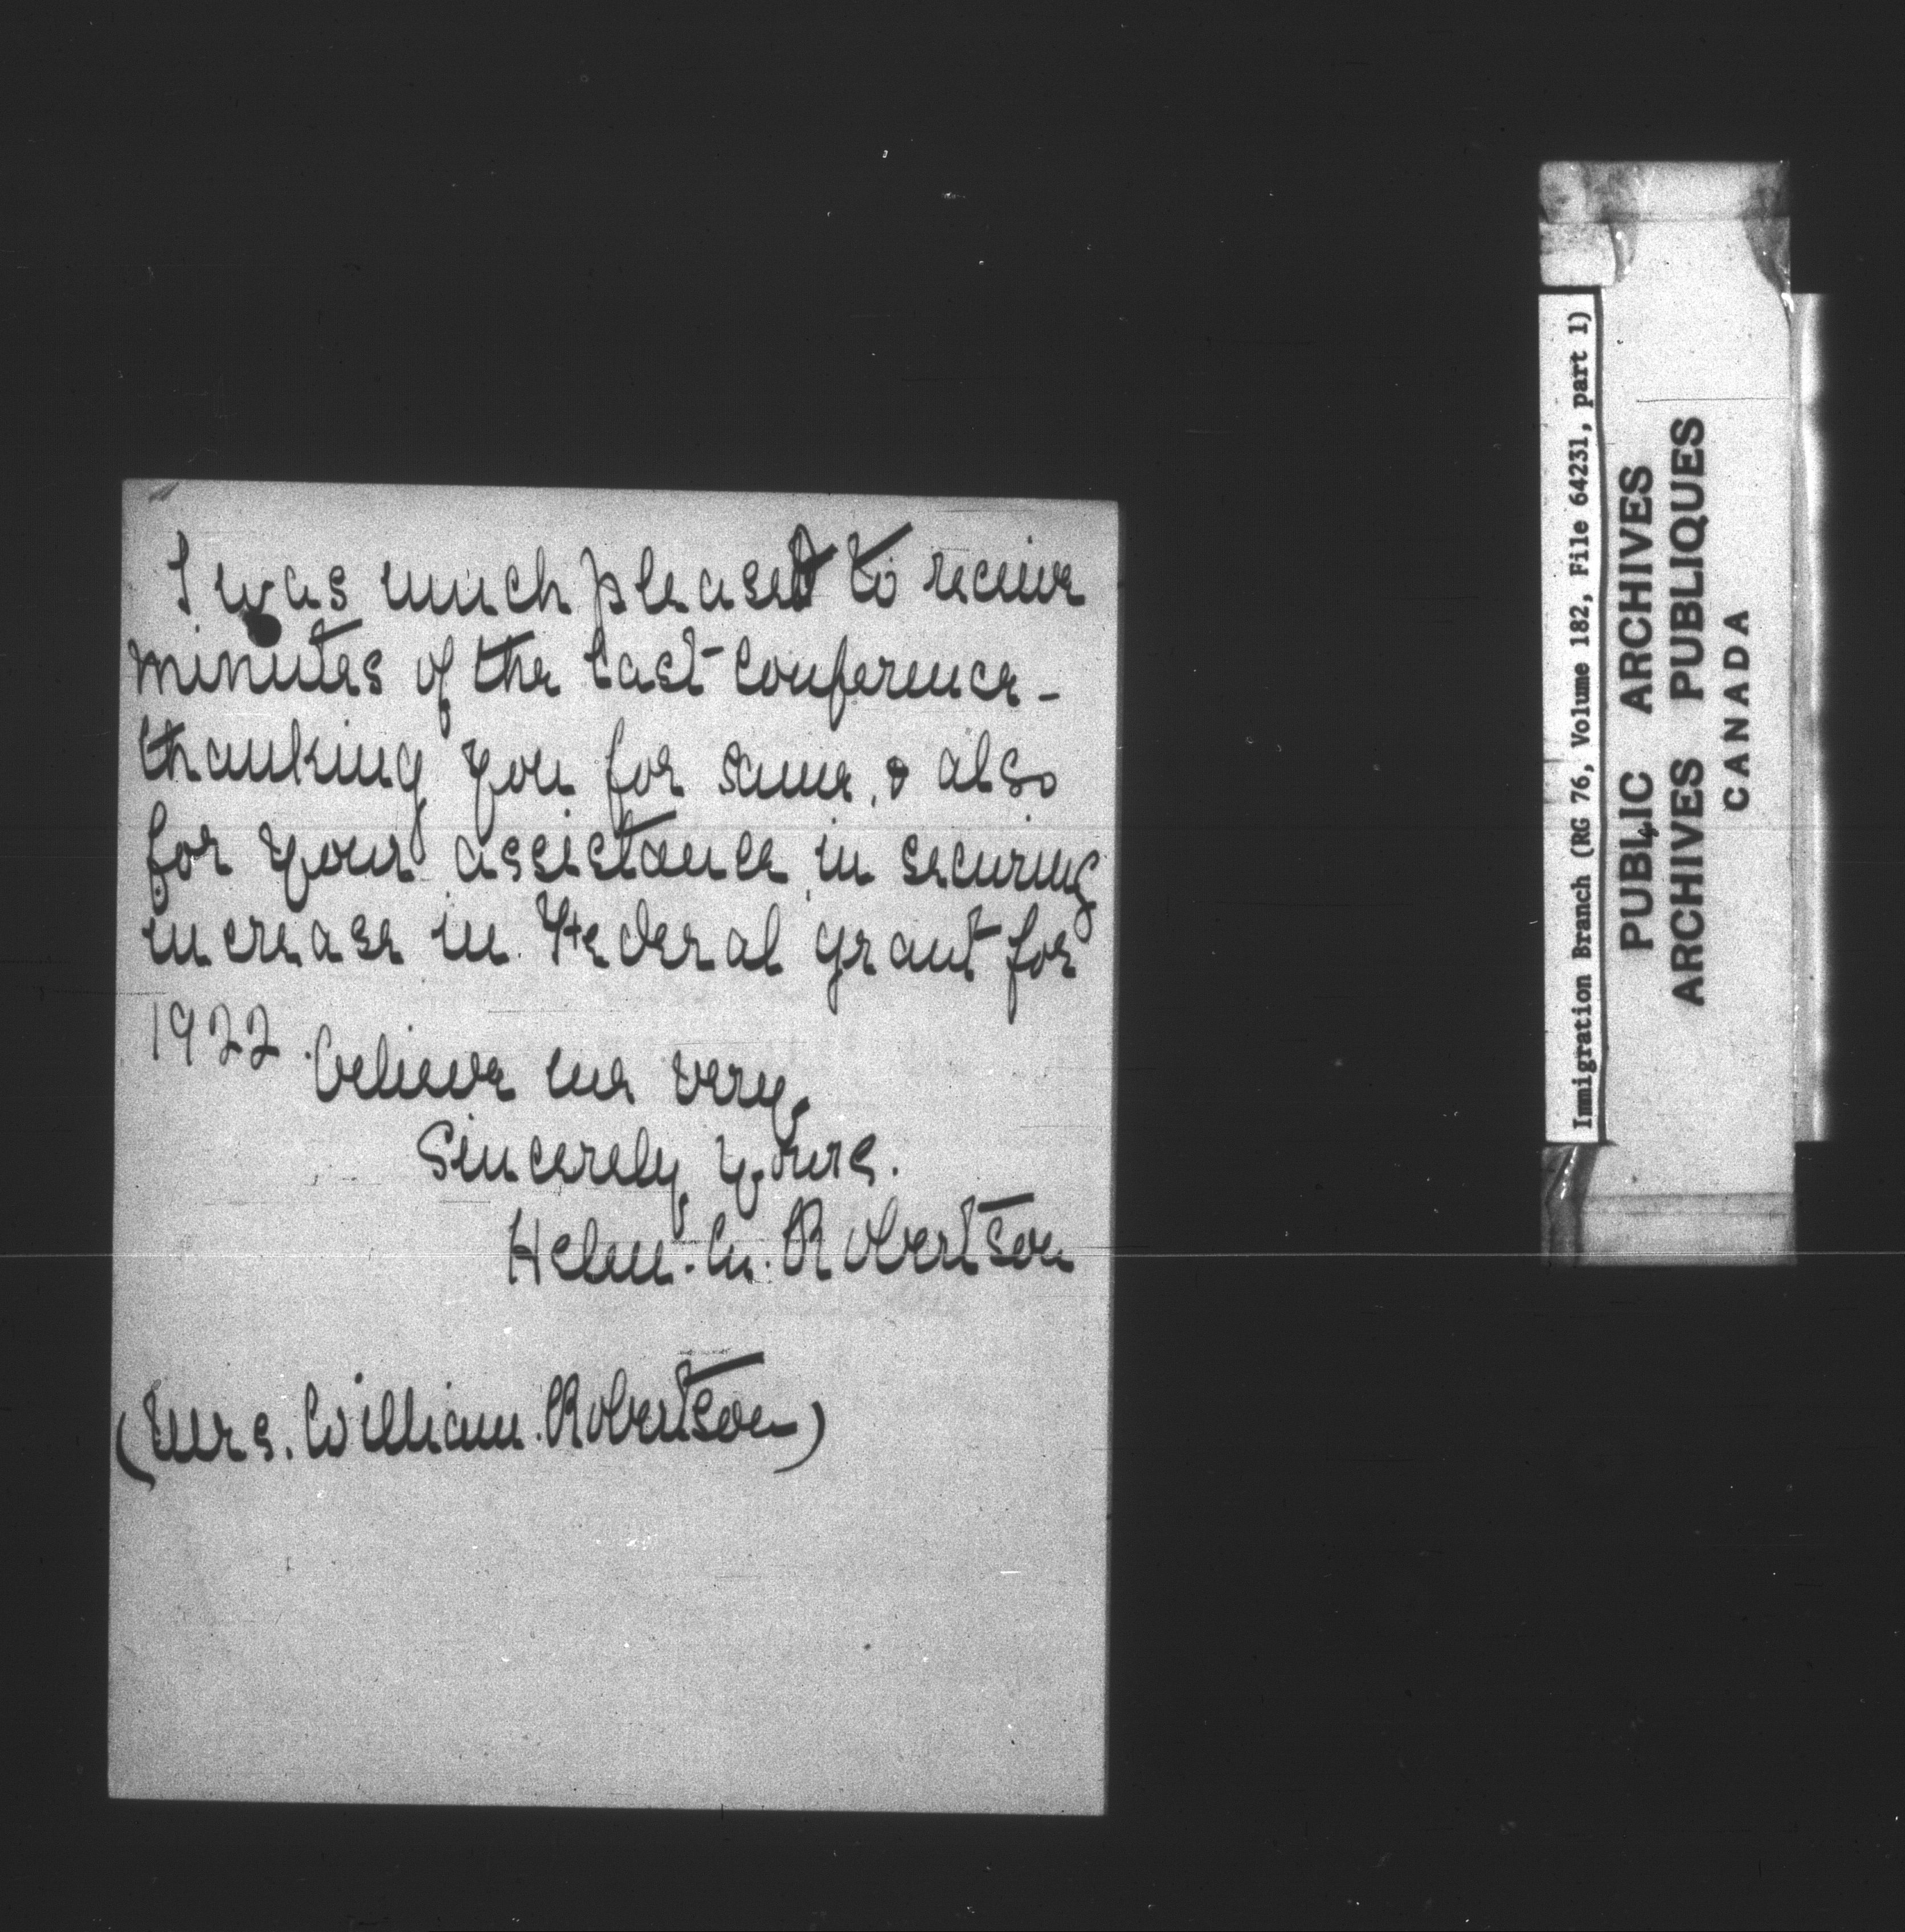 I was much pleased to receive
minutes of the last Conference -
thanking you for same, & also
for your assistance in securing
increase in Federal grant for
1922. believe me very,
Sincerely yours.
Helen. M. Robertson
(Mrs. William. Robertson)
Immigration Branch (RG 76, Volume 182, File 64231, part 1)
PUBLIC ARCHIVES
ARCHIVES PUBLIQUES
CANADA